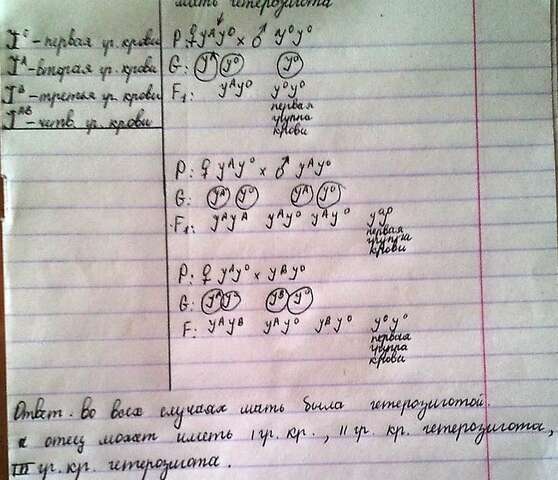 мать гетерозигота
J⁰ - первая гр. крови
Jᴬ - вторая гр. крови
Jᴮ - третья гр. крови
Jᴬᴮ - четв. гр. крови
P: ♀ yᴬy⁰ × ♂ y⁰y⁰
G: yᴬ y⁰ y⁰
F₁: yᴬy⁰ y⁰y⁰
первая
группа
крови
P: ♀ yᴬy⁰ × ♂ yᴬy⁰
G: yᴬ y⁰ yᴬ y⁰
F₁: yᴬyᴬ yᴬy⁰ yᴬy⁰ y⁰y⁰
первая
группа
крови
P: ♀ yᴬy⁰ × yᴮy⁰
G: yᴬ y⁰ yᴮ y⁰
F: yᴬyᴮ yᴬy⁰ yᴮy⁰ y⁰y⁰
первая
группа
крови
Ответ. Во всех случаях мать была гетерозиготой.
а отец может иметь I гр. кр., II гр. кр. гетерозигота,
III гр. кр. гетерозигота.